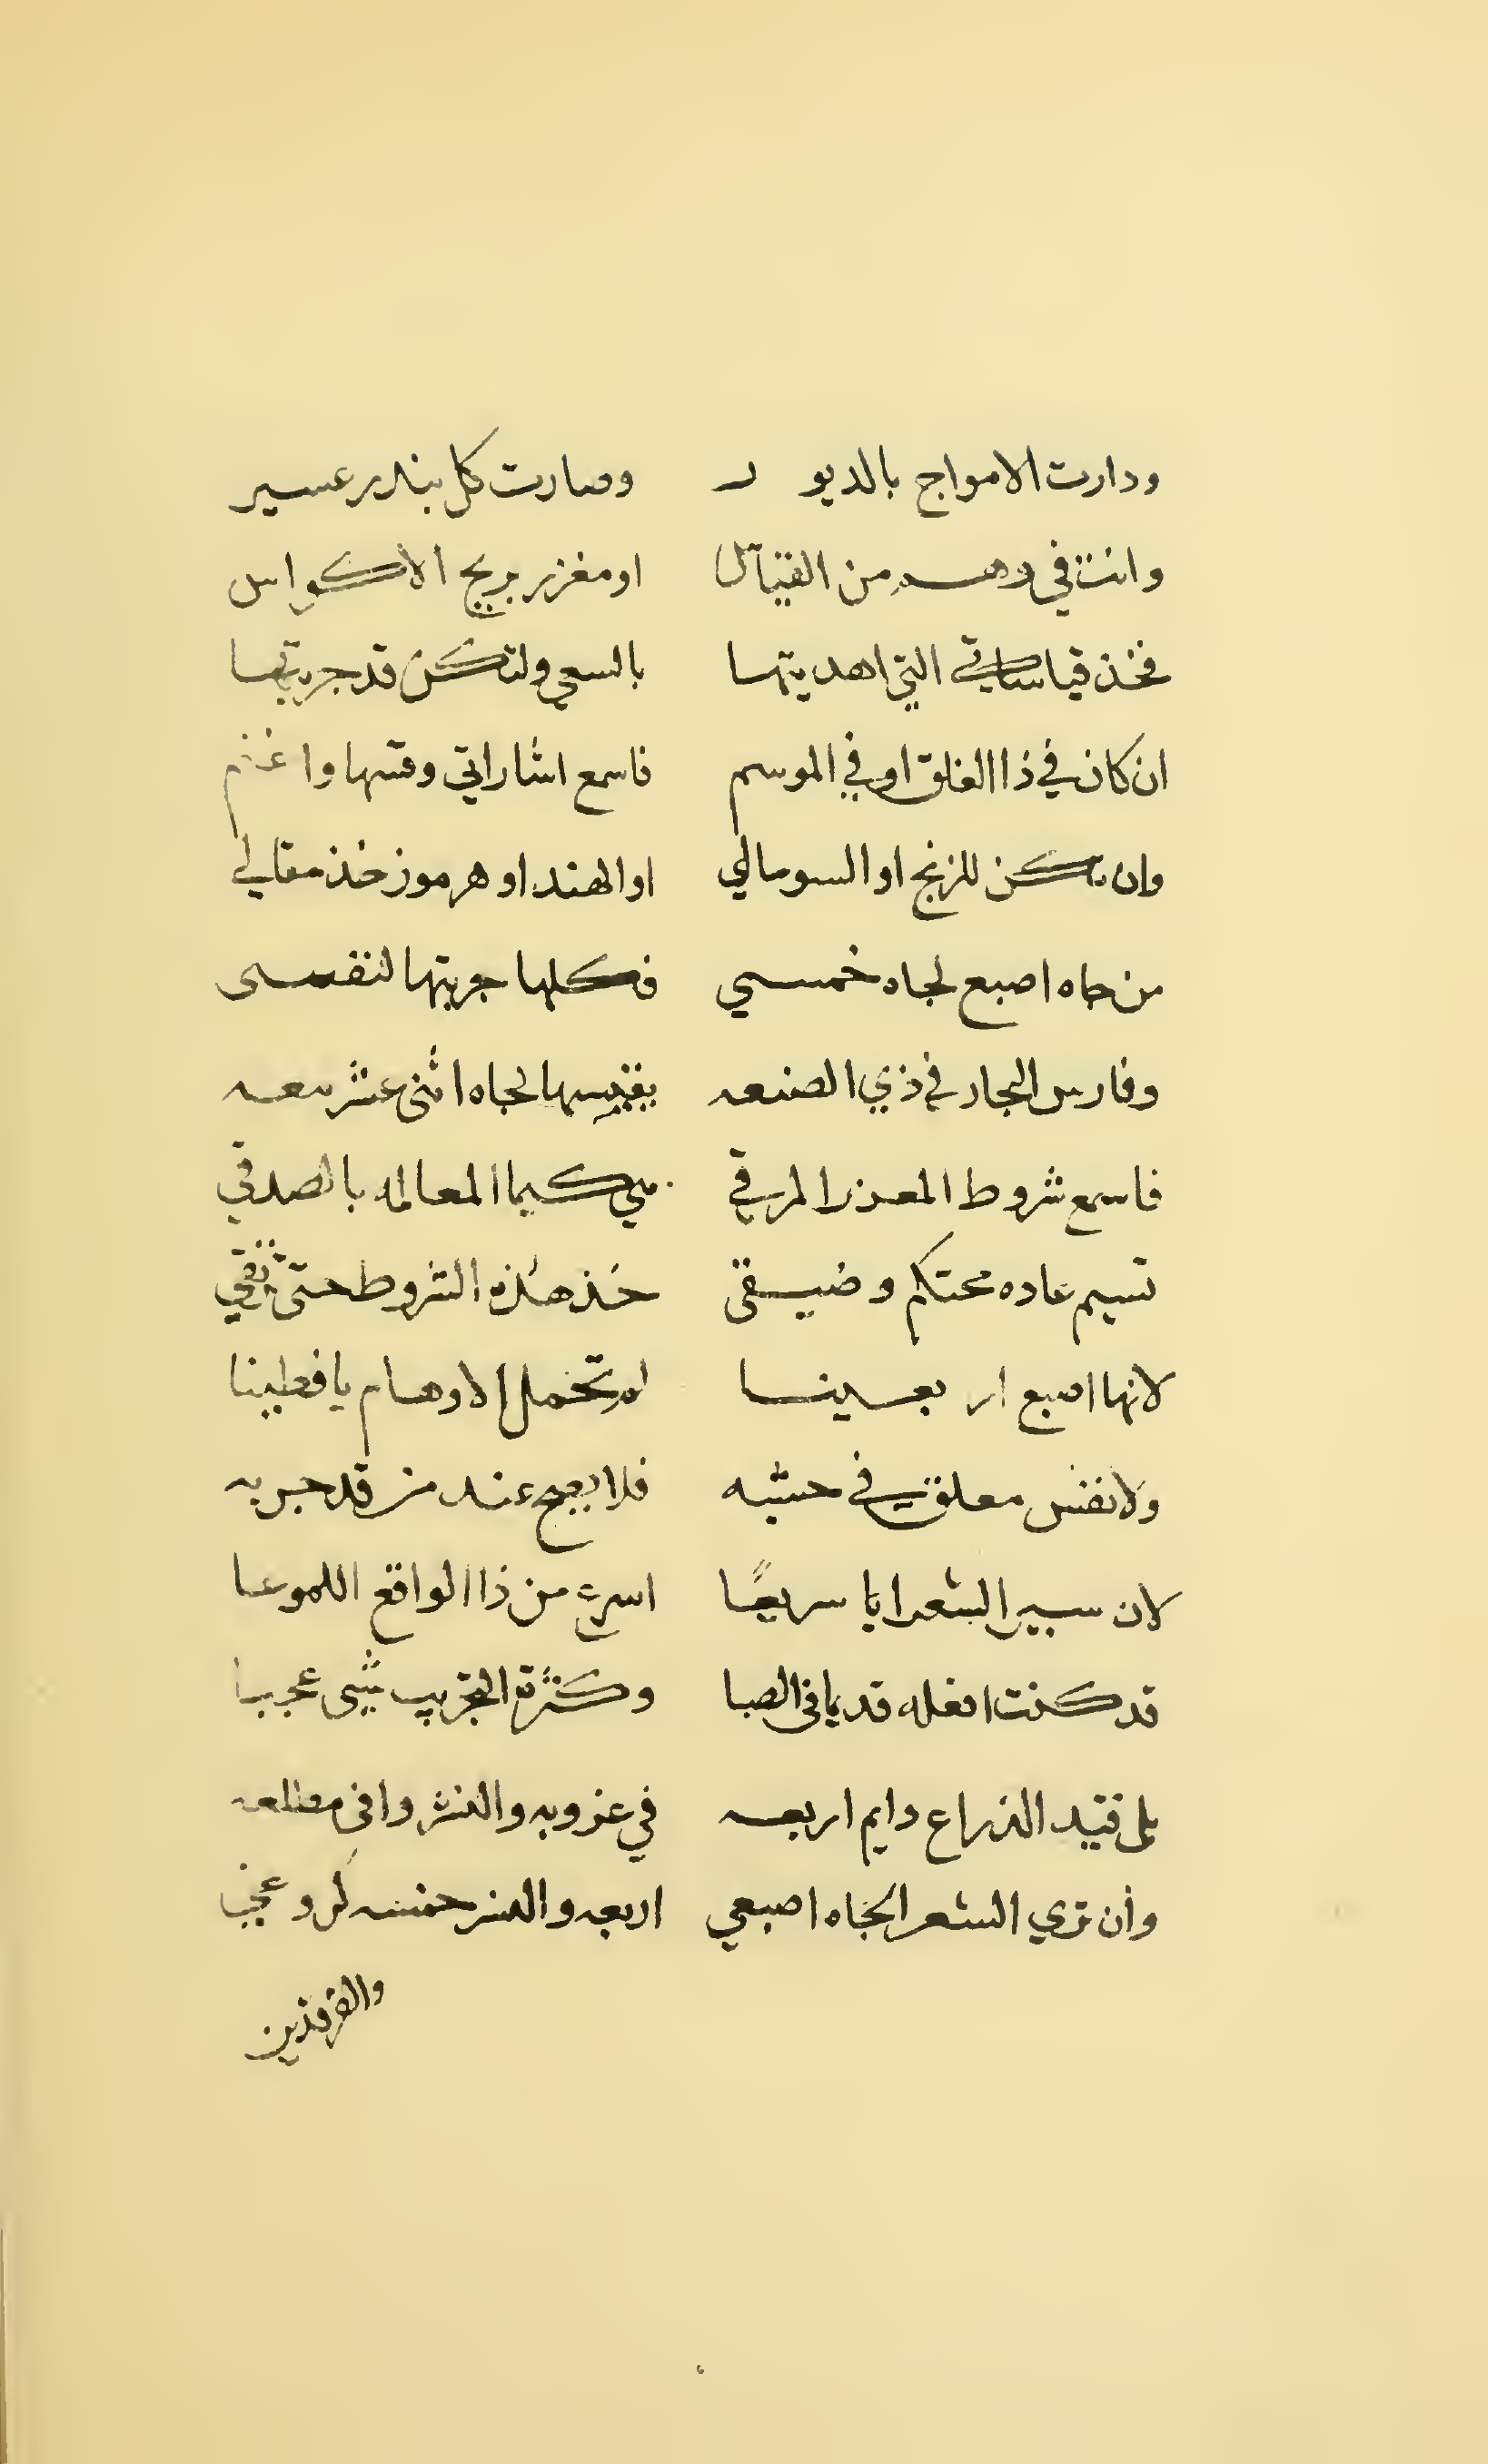 ودارت الامواج بالديو ر وصارت كل بندر عسير
وانت في وهم من القياس او مغزر بريح الاكواس
فخذ قياساتي التي اهديتها بالسعي ولتكن قد جربتها
ان كان في ذا الغلق او في الموسم فاسمع اشاراتي وقسها واغنم
وان تكن للزنج او السومالي او الهند او هرموز خذ مقالي
من جاه اصبع لجاه خمسي فكلها جربتها لنفسي
وفارس البحار في ذي الصنعه يقيسها لجاه اثني عشر معه
فاسمع شروط المعزر المرقي كيما المعالمه بالصدقي
نسيم عاده محتكم وضيقي خذ هذه الشروط حتى ترتقي
لانها اصبع ار بعينا لم تحمل الاوهام يا فطينا
ولا تقس معلق في خشبه فلا يصح عند من قد جربه
لان سير الشعرايا سريعًا اسرع من ذا الواقع اللموعا
قد كنت افعله قديما في الصبا وكثرة التجريب شي عجبا
بلى قيد الذراع دايم اربعه في غروبه والنسر وافى مطلعه
وأن تري الشعرا لجاه اصبعي اربعه والنسر خمسه كر وعي
والفرقدين